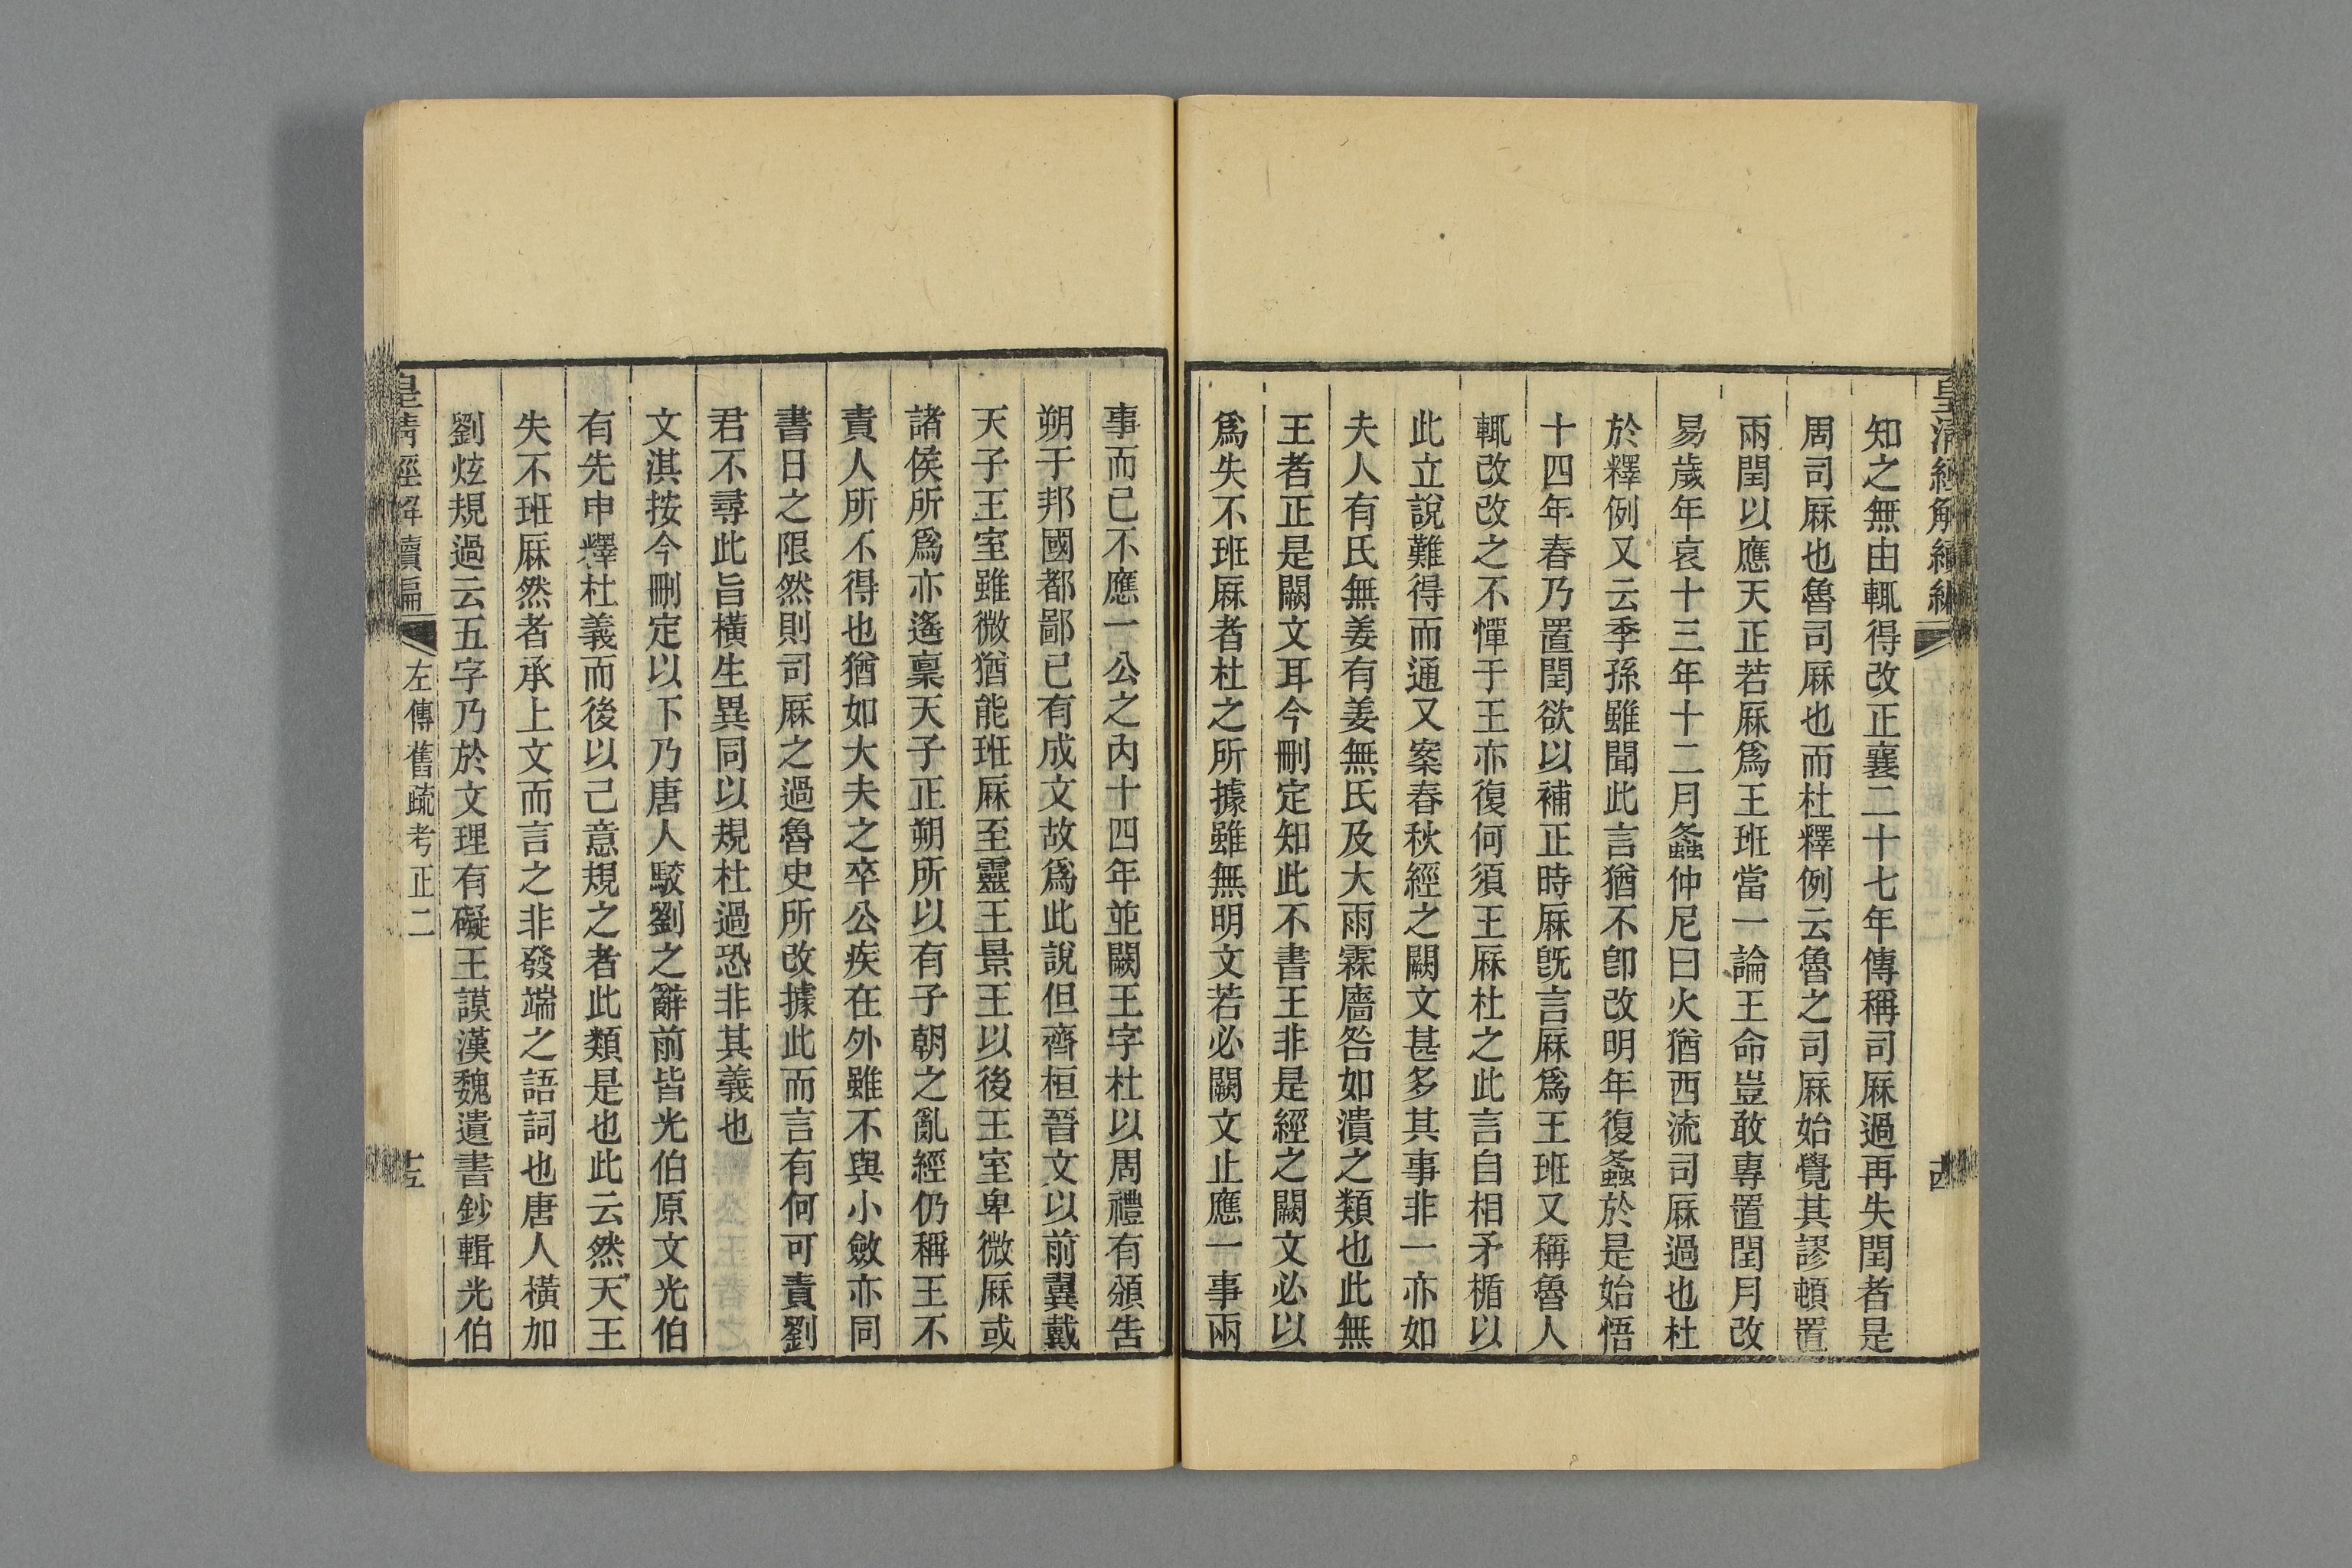 皇清經解續編
知之無由輒得改正襄二十七年傳稱司厤過再失閏者是
周司厤也魯司厤也而杜釋例云魯之司厤始覺其謬頓置
兩閏以應天正若厤爲王班當一論王命豈敢專置閏月改
易歲年哀十三年十二月螽仲尼曰火猶西流司厤過也杜
於釋例又云季孫雖聞此言猶不卽改明年復螽於是始悟
十四年春乃置閏欲以補正時厤旣言厤爲王班又稱魯人
輒改改之不憚于王亦復何須王厤杜之此言自相矛楯以
此立說難得而通又案春秋經之闕文甚多其事非一亦如
夫人有氏無姜有姜無氏及大雨霖廧咎如潰之類也此無
王者正是闕文耳今刪定知此不書王非是經之闕文必以
爲失不班厤者杜之所據雖無明文若必闕文止應一事兩
事而已不應一公之內十四年並闕王字杜以周禮有頒告
朔于邦國都鄙已有成文故爲此說但齊桓晉文以前翼戴
天子王室雖微猶能班厤至靈王景王以後王室卑微厤或
諸侯所爲亦遙稟天子正朔所以有子朝之亂經仍稱王不
責人所不得也猶如大夫之卒公疾在外雖不與小斂亦同
書日之限然則司厤之過魯史所改據此而言有何可責劉
君不尋此旨橫生異同以規杜過恐非其義也
文淇按今刪定以下乃唐人駮劉之辭前皆光伯原文光伯
有先申釋杜義而後以己意規之者此類是也此云然天王
失不班厤然者承上文而言之非發端之語詞也唐人橫加
劉炫規過云五字乃於文理有礙王謨漢魏遺書鈔輯光伯
皇清經解續編 左傳舊疏考正二